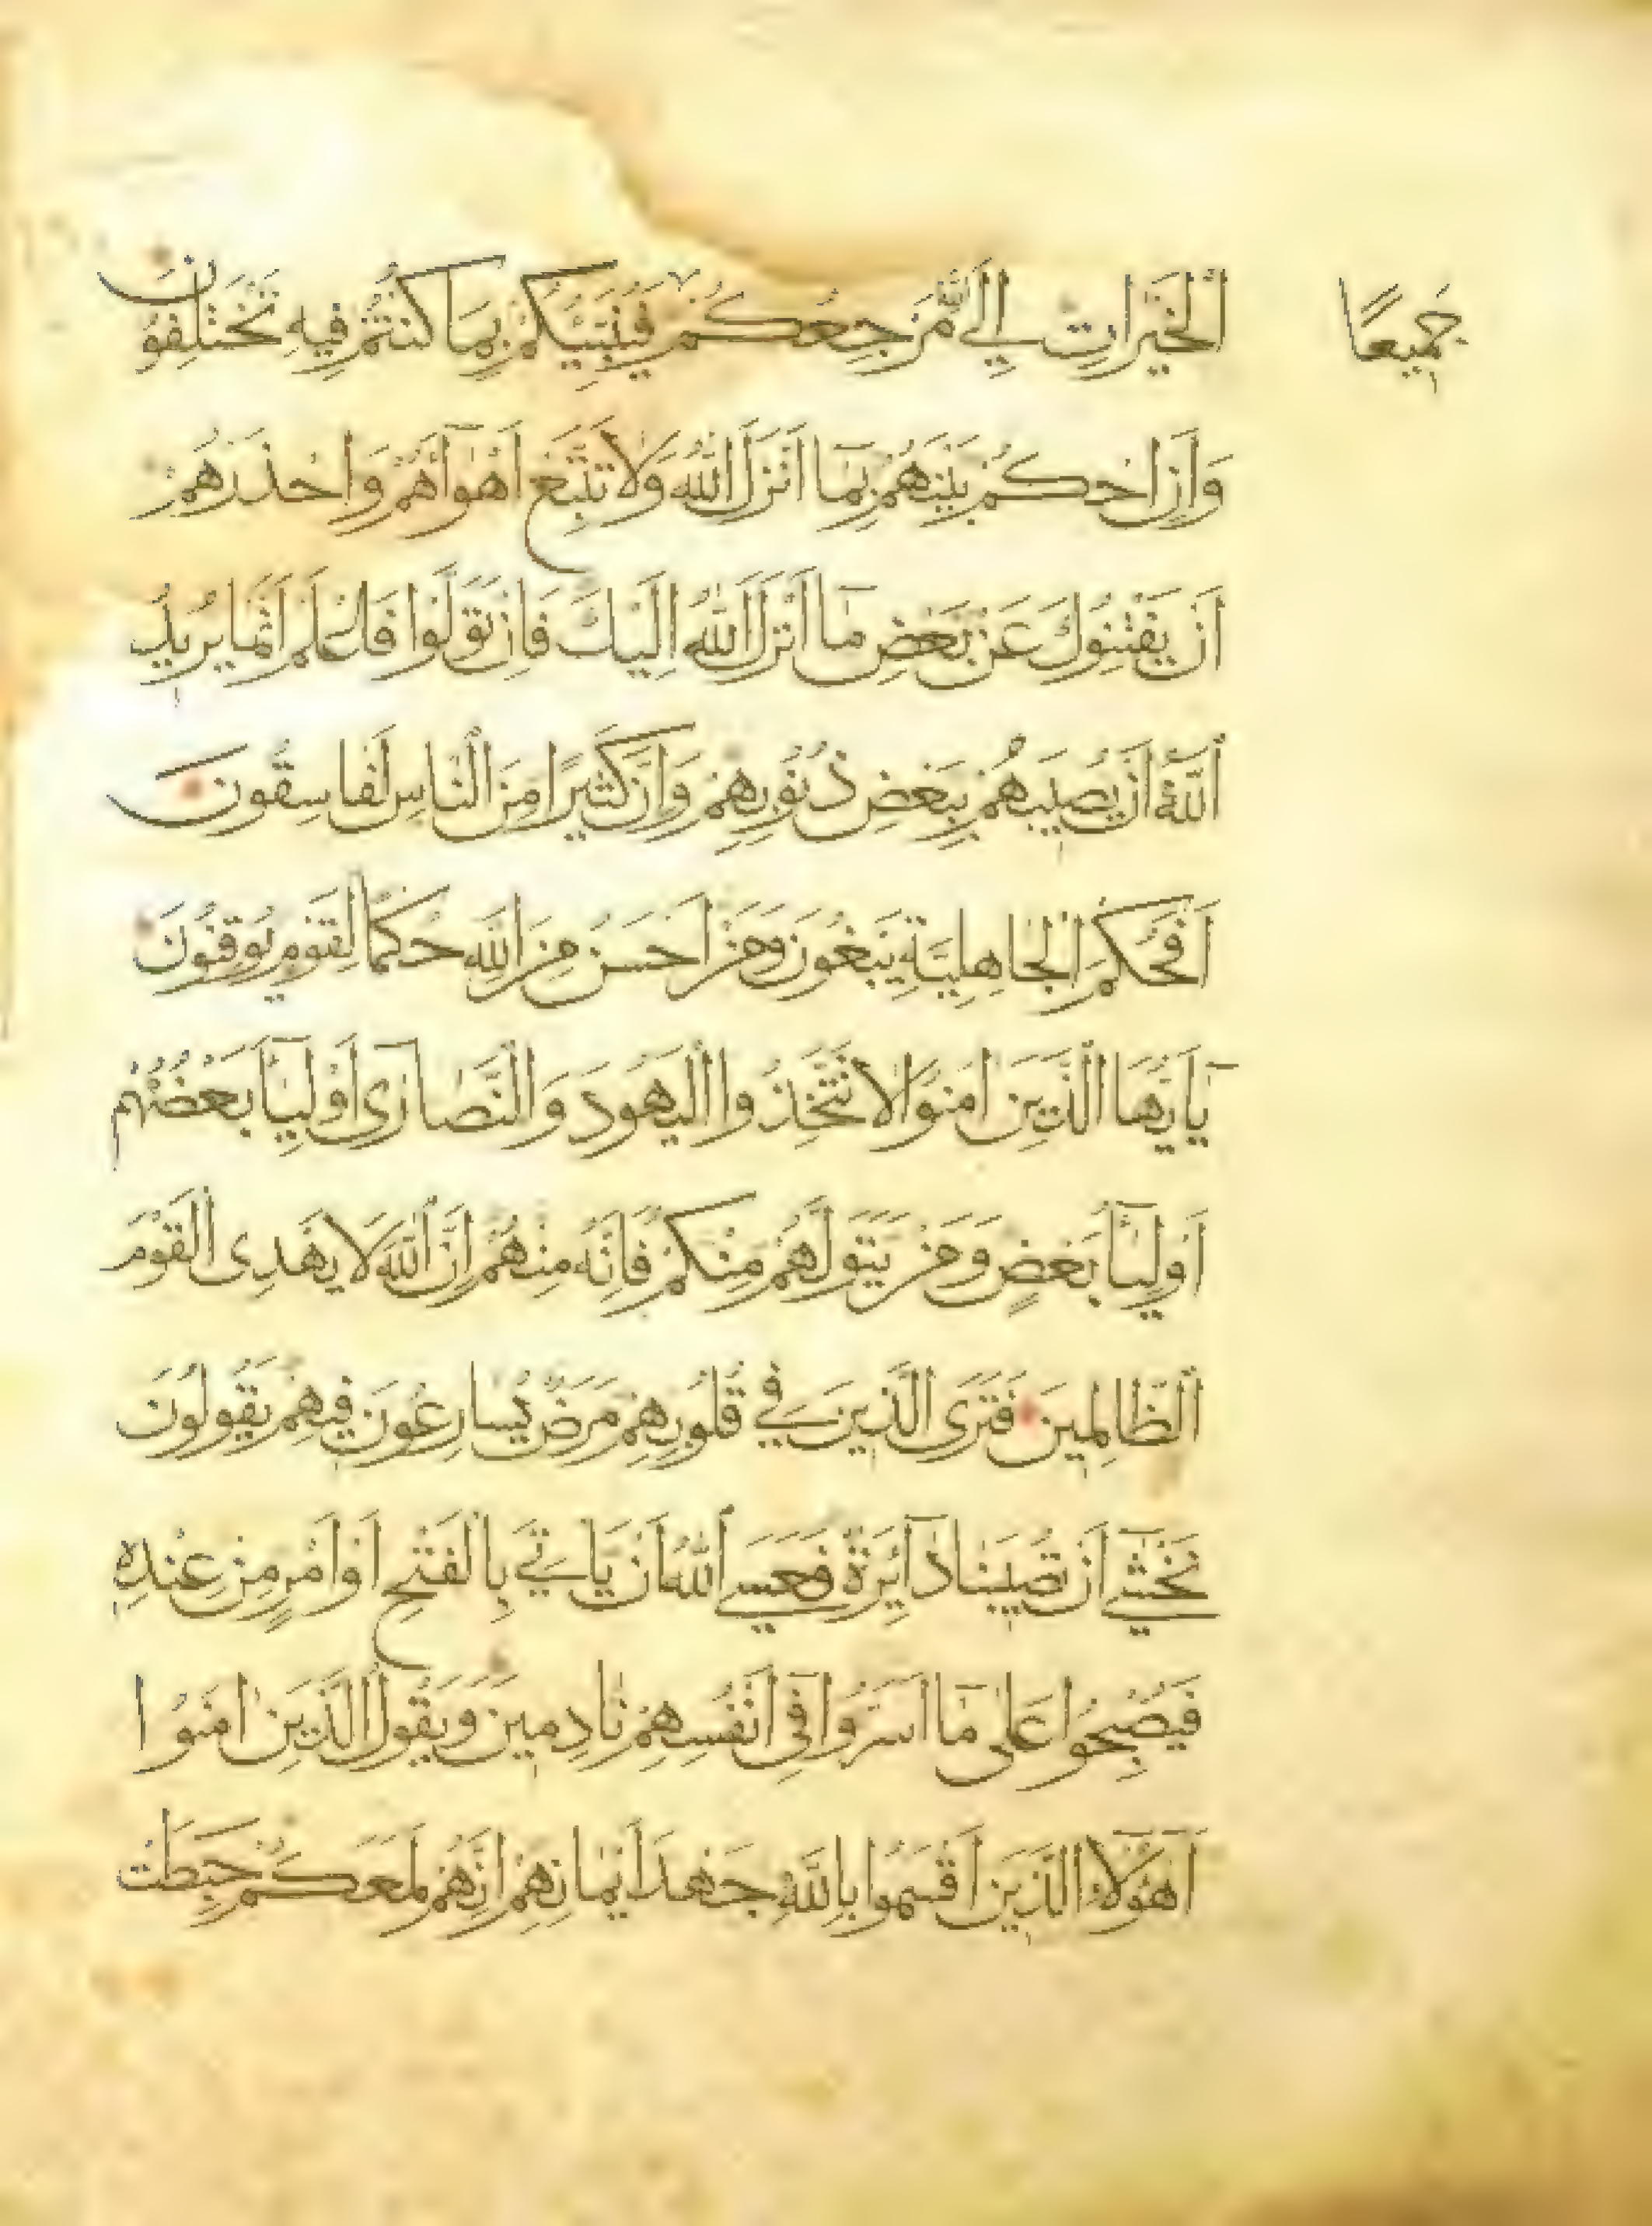 جَمِيعًا
اَلْخَيْرَاتِ اِلَى اللّٰهِ مَرْجِعُكُمْ فَيُنَبِّيُكُمْ بِمَا كُنْتُمْ فِيهِ تَخْتَلِفُونَ
وَاَنِ احْكُمْ بَيْنَهُمْ بِمَآ اَنْزَلَ اللّٰهُ وَلَا تَتَّبِعْ اَهْوَآءَهُمْ وَاحْذَرْهُمْ
اَنْ يَفْتِنُوكَ عَنْ بَعْضِ مَآ اَنْزَلَ اللّٰهُ اِلَيْكَ فَاِنْ تَوَلَّوْا فَاعْلَمْ اَنَّمَا يُرِيدُ
اللّٰهُ اَنْ يُصِيبَهُمْ بِبَعْضِ ذُنُوبِهِمْ وَاِنَّ كَثِيرًا مِنَ النَّاسِ لَفَاسِقُونَ
اَفَحُكْمَ الْجَاهِلِيَّةِ يَبْغُونَ وَمَنْ اَحْسَنُ مِنَ اللّٰهِ حُكْمًا لِقَوْمٍ يُوقِنُونَ
يَآ اَيُّهَا الَّذِينَ اٰمَنُوا لَا تَتَّخِذُوا الْيَهُودَ وَالنَّصَارٰىٓ اَوْلِيَآءَ بَعْضُهُمْ
اَوْلِيَآءُ بَعْضٍ وَمَنْ يَتَوَلَّهُمْ مِنْكُمْ فَاِنَّهُ مِنْهُمْ اِنَّ اللّٰهَ لَا يَهْدِى الْقَوْمَ
الظَّالِمِينَ فَتَرَى الَّذِينَ فِي قُلُوبِهِمْ مَرَضٌ يُسَارِعُونَ فِيهِمْ يَقُولُونَ
نَخْشٰٓى اَنْ تُصِيبَنَا دَآئِرَةٌ فَعَسَى اللّٰهُ اَنْ يَاْتِيَ بِالْفَتْحِ اَوْ اَمْرٍ مِنْ عِنْدِهِ
فَيُصْبِحُوا عَلٰى مَآ اَسَرُّوا فِىٓ اَنْفُسِهِمْ نَادِمِينَ وَيَقُولُ الَّذِينَ اٰمَنُوا
اَهٰٓؤُلَآءِ الَّذِينَ اَقْسَمُوا بِاللّٰهِ جَهْدَ اَيْمَانِهِمْ اِنَّهُمْ لَمَعَكُمْ حَبِطَتْ